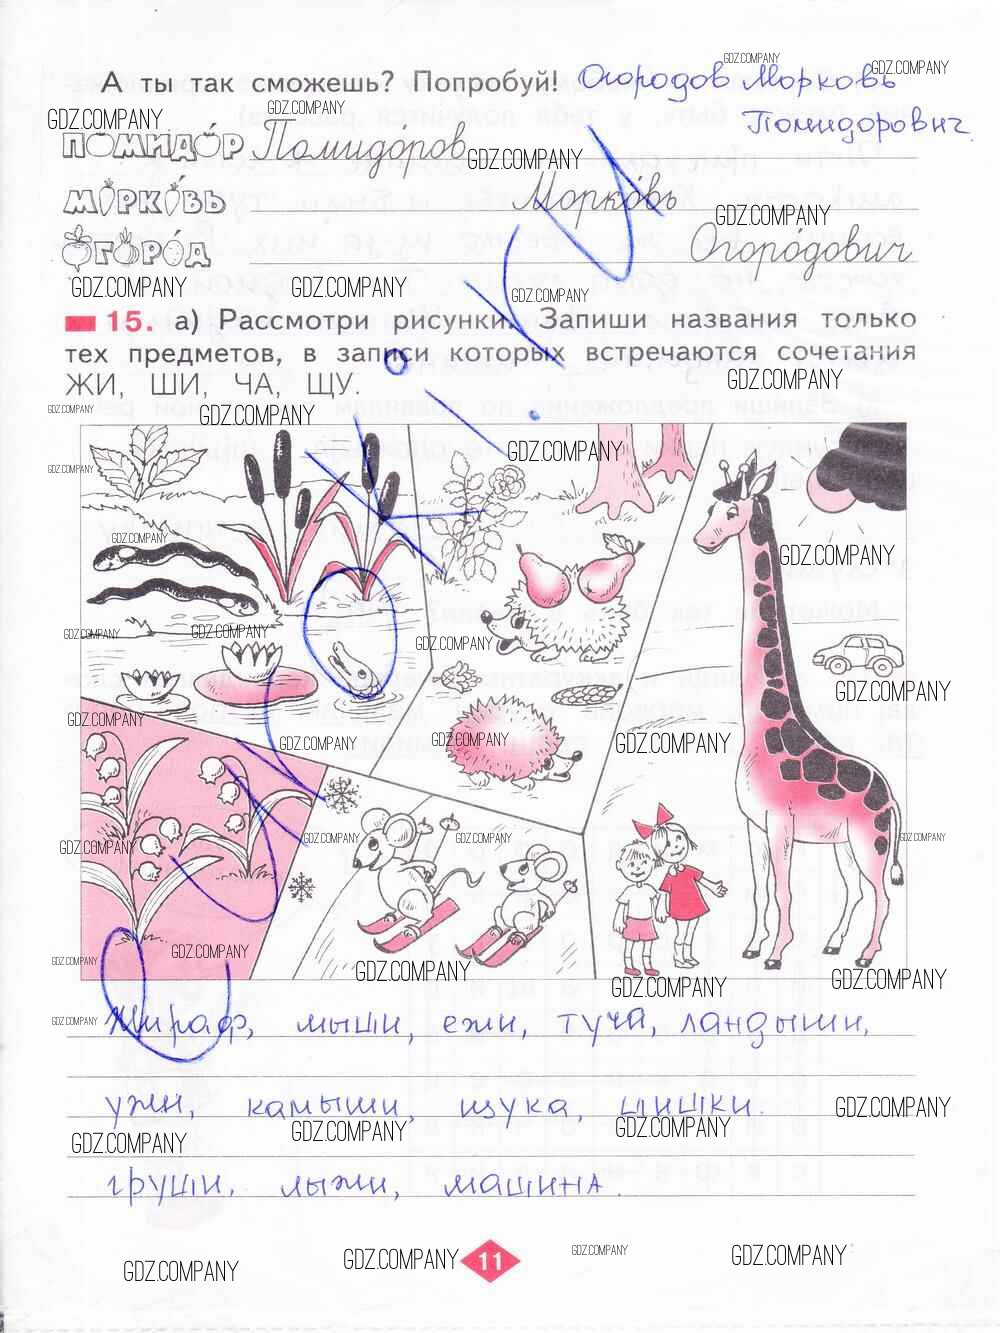 А ты так сможешь? Попробуй! Огородов Морковь
Помидорович
ПОМИДОР Помидоров
МОРКОВЬ Морковь
ОГОРОД Огородович
15. а) Рассмотри рисунки. Запиши названия только
тех предметов, в записи которых встречаются сочетания
ЖИ, ШИ, ЧА, ЩУ.
Жираф, мыши, ежи, туча, ландыши,
ужи, камыши, щука, шишки.
груши, лыжи, машина.
11
GDZ.COMPANY